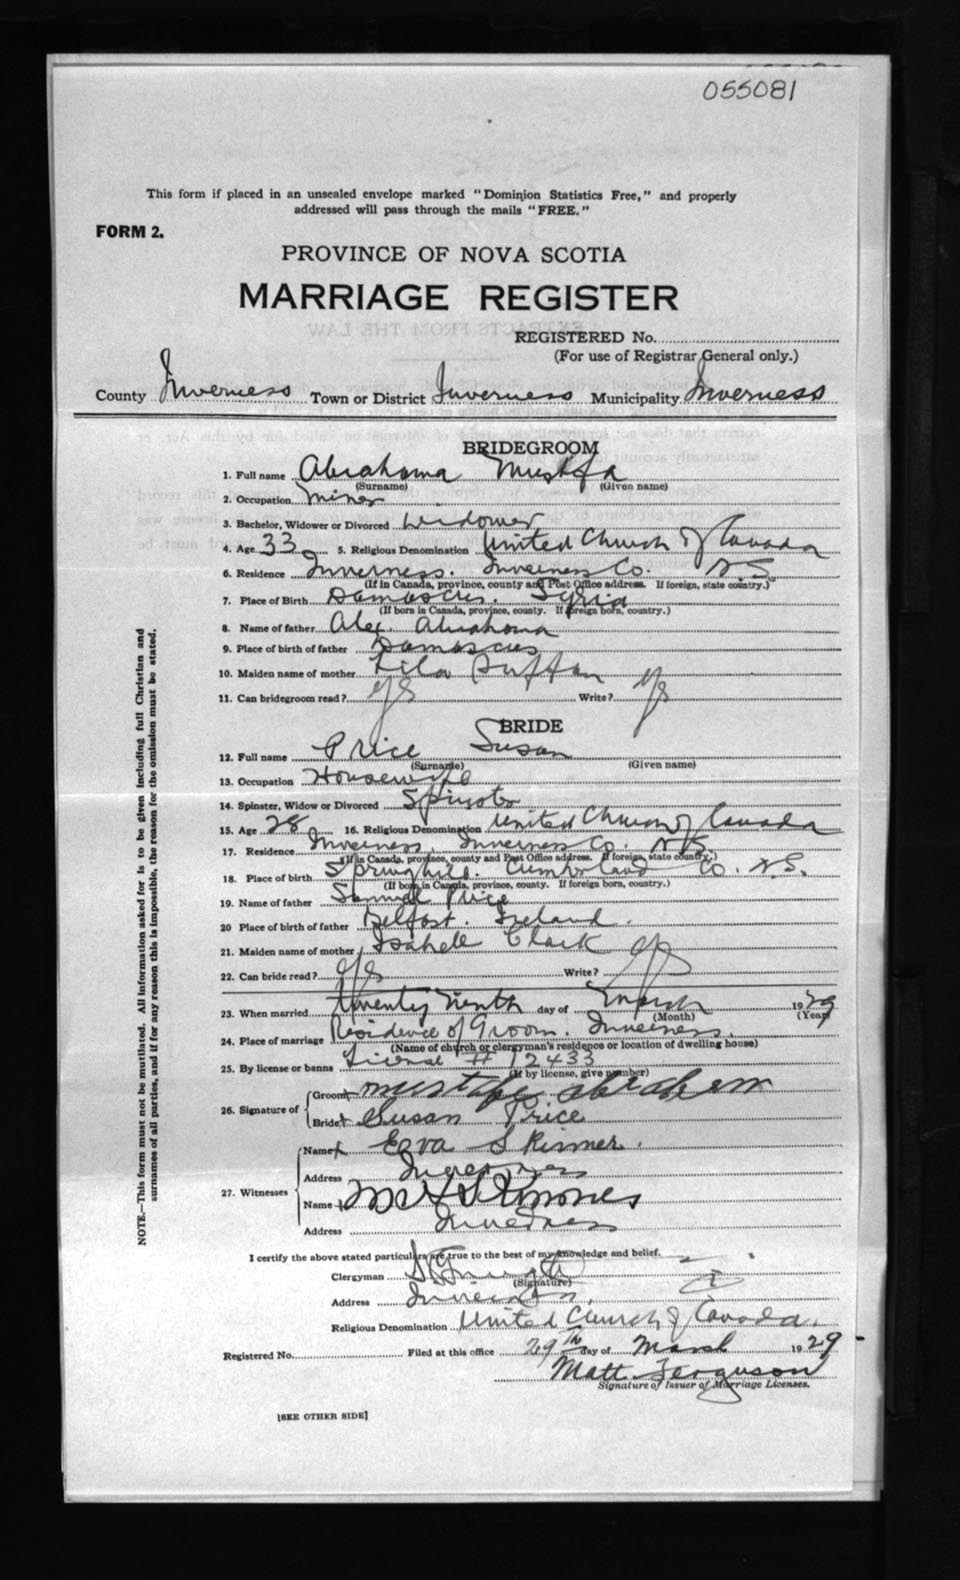 055081
This form if placed in an unsealed envelope marked "Dominion Statistics Free," and properly
addressed will pass through the mails "FREE."
FORM 2.
PROVINCE OF NOVA SCOTIA
MARRIAGE REGISTER
REGISTERED No.
(For use of Registrar General only.)
County Inverness Town or District Inverness Municipality Inverness
BRIDEGROOM
1. Full name Abrahama Mustafa
(Surname) (Given name)
2. Occupation Miner
3. Bachelor, Widower or Divorced Widower
4. Age 33 5. Religious Denomination United Church of Canada
6. Residence Inverness. Inverness Co. N.S.
(If in Canada, province, county and Post Office address. If foreign, state country.)
7. Place of Birth Damascus. Syria
(If born in Canada, province, county. If foreign born, country.)
8. Name of father Alex. Abrahama
9. Place of birth of father Damascus
10. Maiden name of mother Lila
11. Can bridegroom read? yes Write? yes
BRIDE
12. Full name Price Susan
(Surname) (Given name)
13. Occupation Housewife
14. Spinster, Widow or Divorced Spinster
15. Age 28 16. Religious Denomination United Church of Canada
17. Residence Inverness. Inverness Co. N.S.
(If in Canada, province, county and Post Office address. If foreign, state country.)
18. Place of birth Springhill. Cumberland Co. N.S.
(If born in Canada, province, county. If foreign born, country.)
19. Name of father Samuel Price
20 Place of birth of father Belfast. Ireland.
21. Maiden name of mother Isabell Clark
22. Can bride read? yes Write? yes
23. When married twenty ninth day of March 1929
(Month) (Year)
24. Place of marriage Residence of Groom. Inverness.
(Name of church or clergyman's residence or location of dwelling house)
25. By license or banns License # 12433
(If by license, give number)
26. Signature of
Groom mustafa abrahem
Bride Susan Price
27. Witnesses
Name Skinner.
Address Inverness
Name
Address Inverness
I certify the above stated particulars are true to the best of my knowledge and belief.
Clergyman
(Signature)
Address Inverness
Religious Denomination United Church of Canada.
Registered No. Filed at this office 29th day of March 1929
Matt Ferguson
Signature of Issuer of Marriage Licenses.
[SEE OTHER SIDE]
NOTE.—This form must not be mutilated. All information asked for is to be given including full Christian and
surnames of all parties, and if for any reason this is impossible, the reason for the omission must be stated.